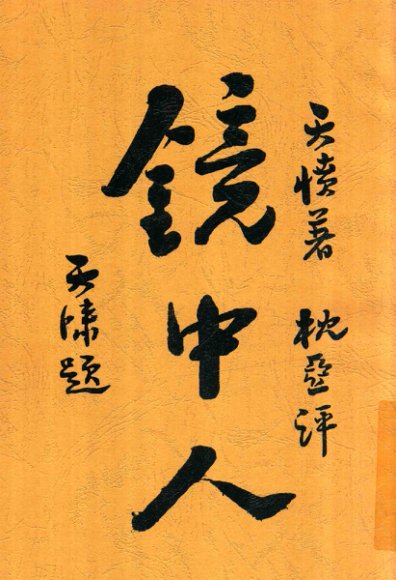 天憤著 枕亞評
鏡中人
天嘯題